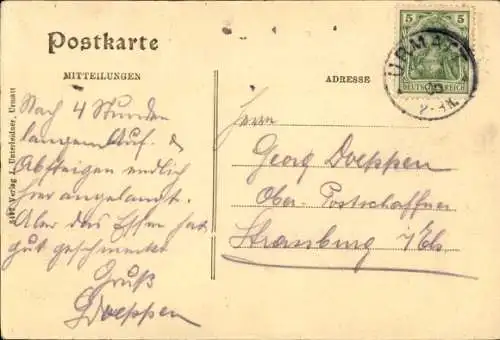 Postkarte
MITTEILUNGEN
ADRESSE
5
5
DEUTSCHES REICH
URMATT
Nach 4 Stunden
langem Auf- &
Absteigen endlich
hier angelangt.
Aber das Essen hat
gut geschmeckt
Gruß
Doeppen
Herrn
Georg Doeppen
Ober-Postschaffner
Strassburg i/Els
Verlag J. Unterleidner, Urmatt